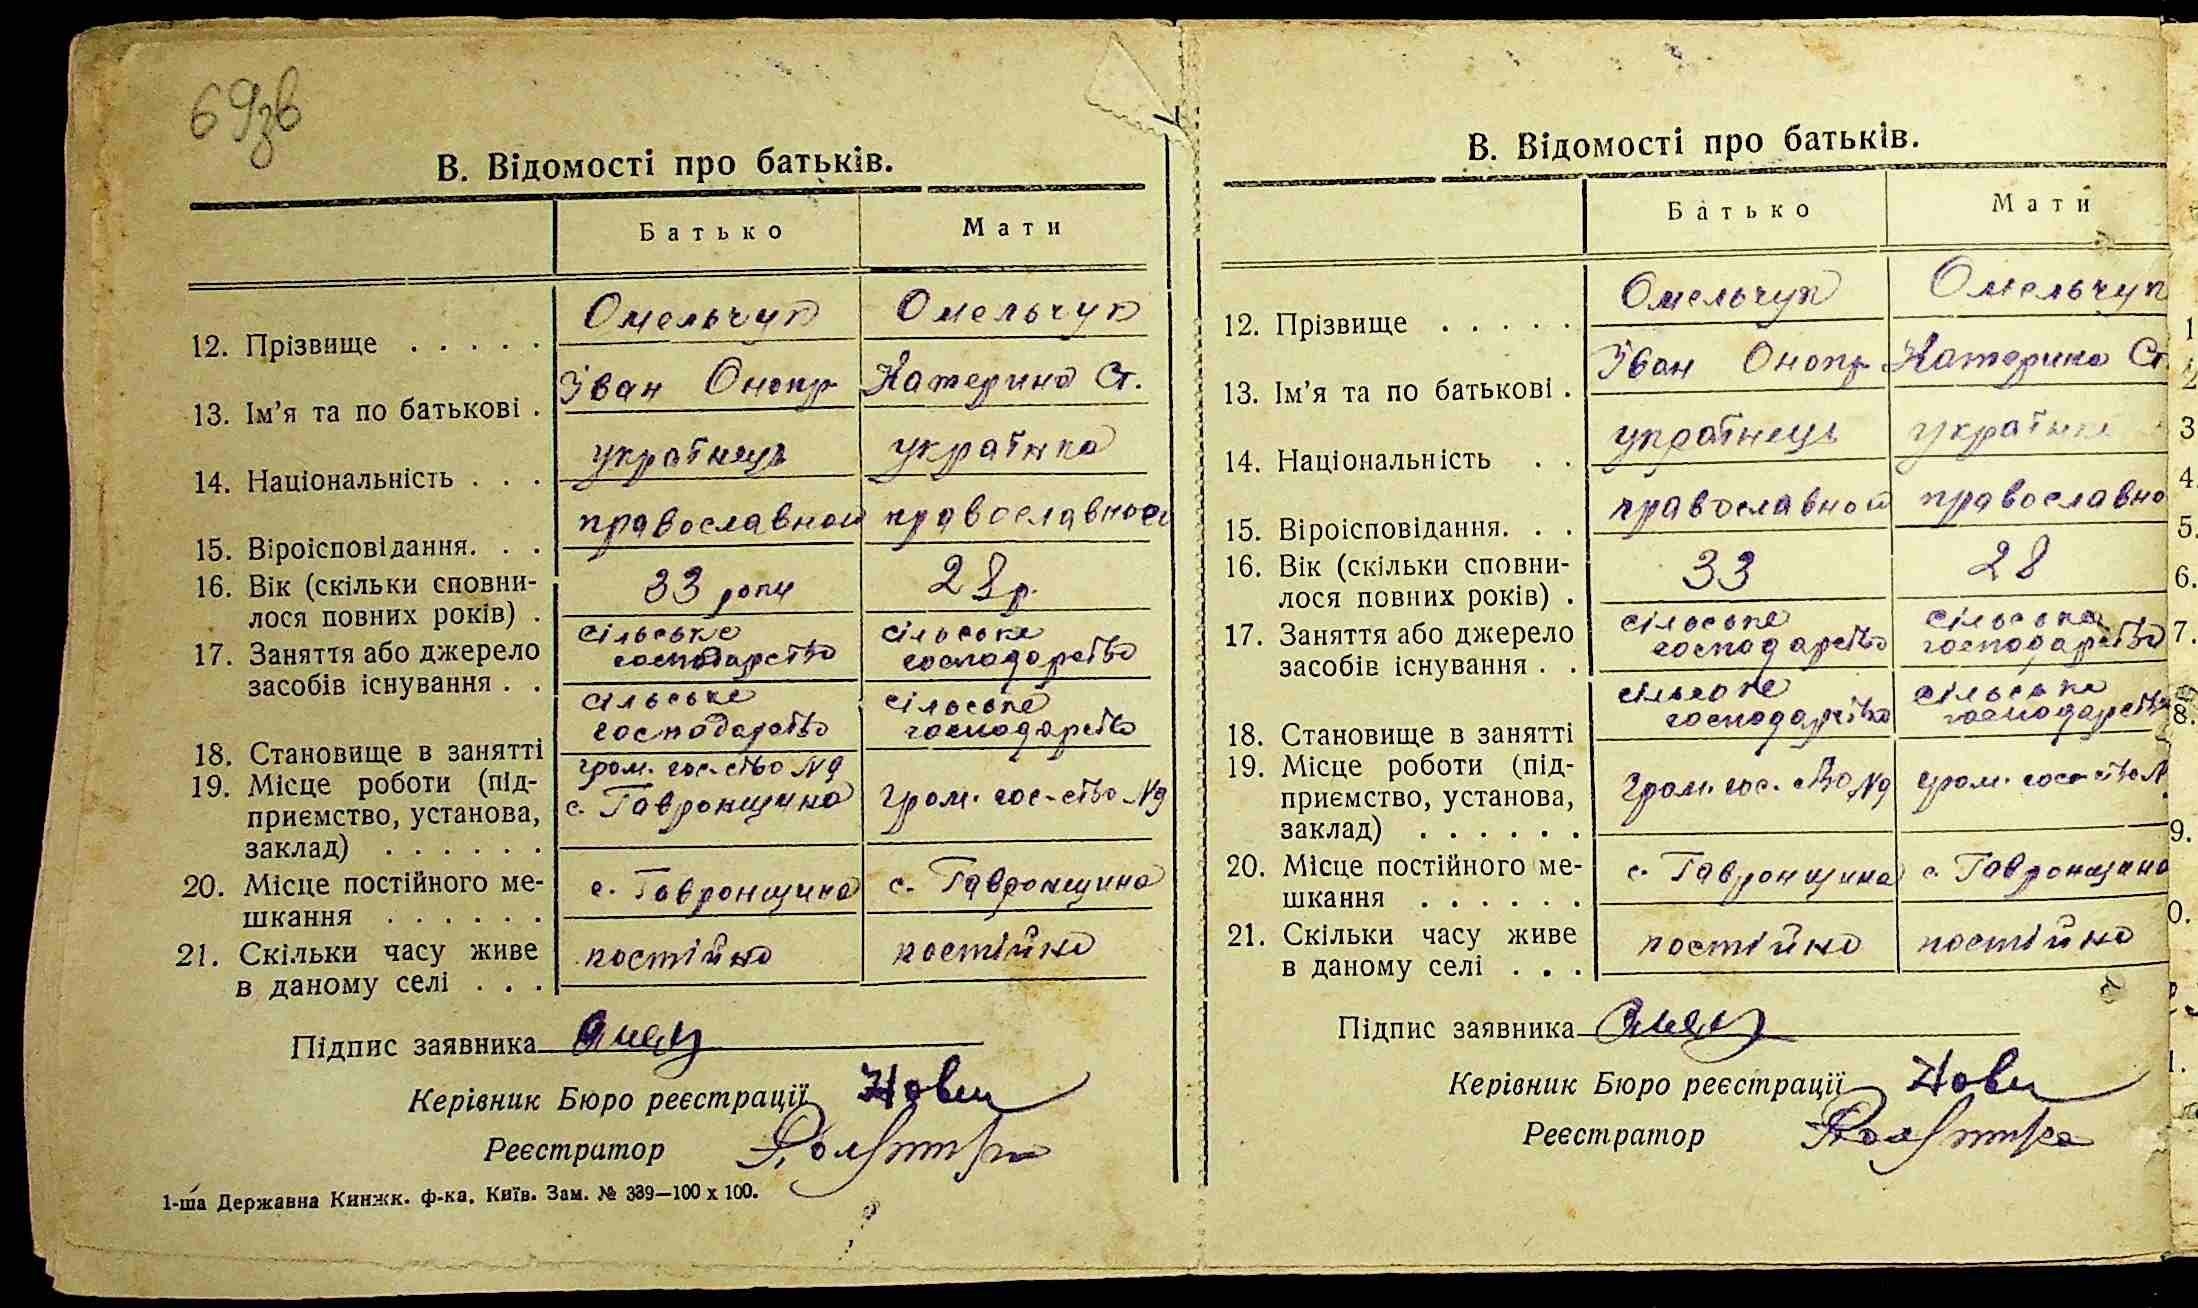 69зв
В. Відомості про батьків.
Батько Мати
12. Прізвище . . . . . Омельчук Омельчук
13. Ім'я та по батькові . Іван Онопр Катерина Ст.
14. Національність . . . українець українка
15. Віроісповідання. . . православной православной
16. Вік (скільки сповни-
лося повних років) . 33 роки 28 р.
17. Заняття або джерело
засобів існування . . сільське господарство сільське господарство
18. Становище в занятті сільське господарство сільське господарство
19. Місце роботи (під-
приємство, установа,
заклад) . . . . . . гром. гос-ство №9 с. Гавронщина гром. гос-ство №9
20. Місце постійного ме-
шкання . . . . . . с. Гавронщина с. Гавронщина
21. Скільки часу живе
в даному селі . . . постійно постійно
Підпис заявника
Керівник Бюро реєстрації
Реєстратор
1-ша Державна Книжк. ф-ка. Київ. Зам. № 339—100 х 100.
В. Відомості про батьків.
Батько Мати
12. Прізвище . . . . . Омельчук Омельчук
13. Ім'я та по батькові . Іван Онопр Катерина Ст.
14. Національність . . українець українка
15. Віроісповідання. . . православной православно
16. Вік (скільки сповни-
лося повних років) . 33 28
17. Заняття або джерело
засобів існування . . сільське господарство сільське господарство
18. Становище в занятті сільське господарство сільське господарство
19. Місце роботи (під-
приємство, установа,
заклад) . . . . . . гром. гос-ство №9 гром. гос-ство №
20. Місце постійного ме-
шкання . . . . . . с. Гавронщина с. Гавронщина
21. Скільки часу живе
в даному селі . . . постійно постійно
Підпис заявника
Керівник Бюро реєстрації
Реєстратор